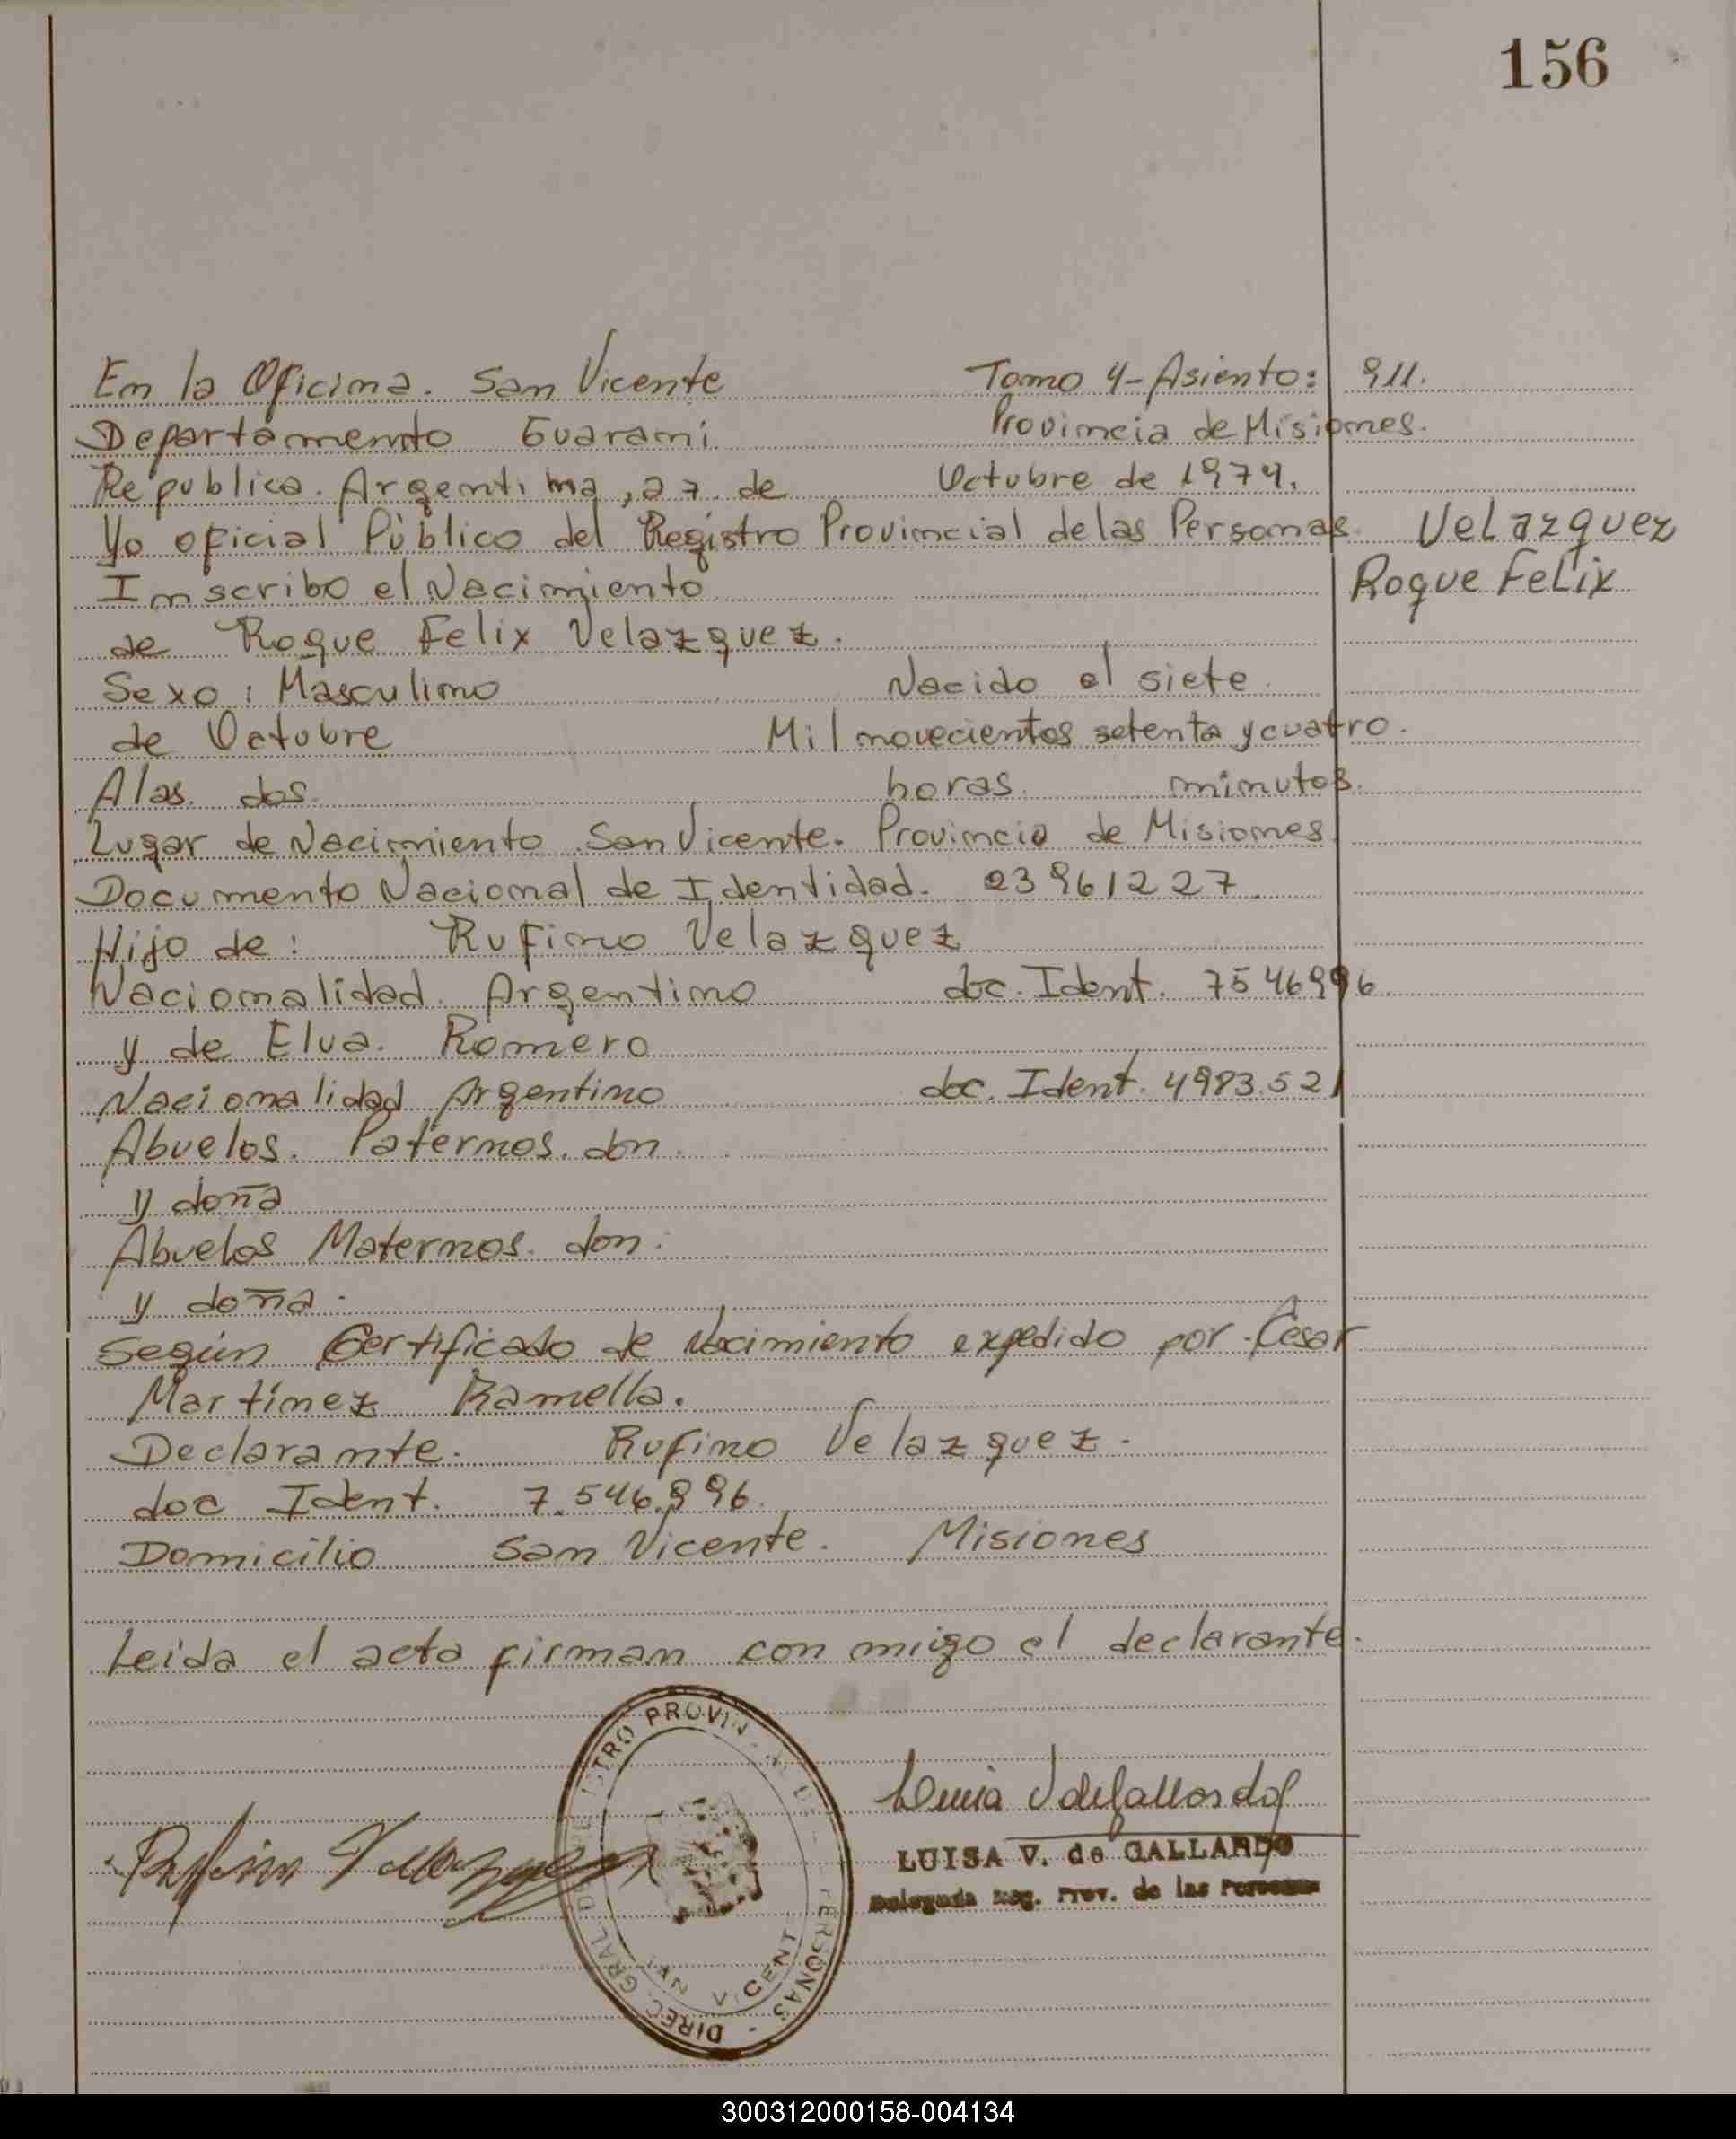 156
En la Oficina. San Vicente Tomo 4-Asiento: 911.
Departamento Guarani Provincia de Misiones.
Republica. Argentina, 27. de Octubre de 1974.
Yo oficial Público del Registro Provincial de las Personas. Velazquez
Inscribo el Nacimiento Roque Felix
de Roque Felix Velazquez.
Sexo: Masculino Nacido el siete
de Octubre Mil novecientos setenta y cuatro.
A las. dos. horas. minutos.
Lugar de Nacimiento. San Vicente. Provincia de Misiones
Documento Nacional de Identidad. 23961227.
Hijo de: Rufino Velazquez
Nacionalidad. Argentino doc. Ident. 7546996.
y de Elva. Romero
Nacionalidad Argentino doc. Ident. 4983.521
Abuelos. Paternos. don.
y doña
Abuelos Maternos. don.
y doña.
Según Certificado de Nacimiento expedido por. Cesar
Martínez Ramella.
Declarante. Rufino Velazquez.
doc Ident. 7.546.996.
Domicilio San Vicente. Misiones
Leida el acta firman con migo el declarante.
Rufino Velazquez
LUISA V. de GALLARDO
Delegada Reg. Prov. de las Personas
DIREC. GRAL. PERSONAS
SAN VICENTE
300312000158-004134